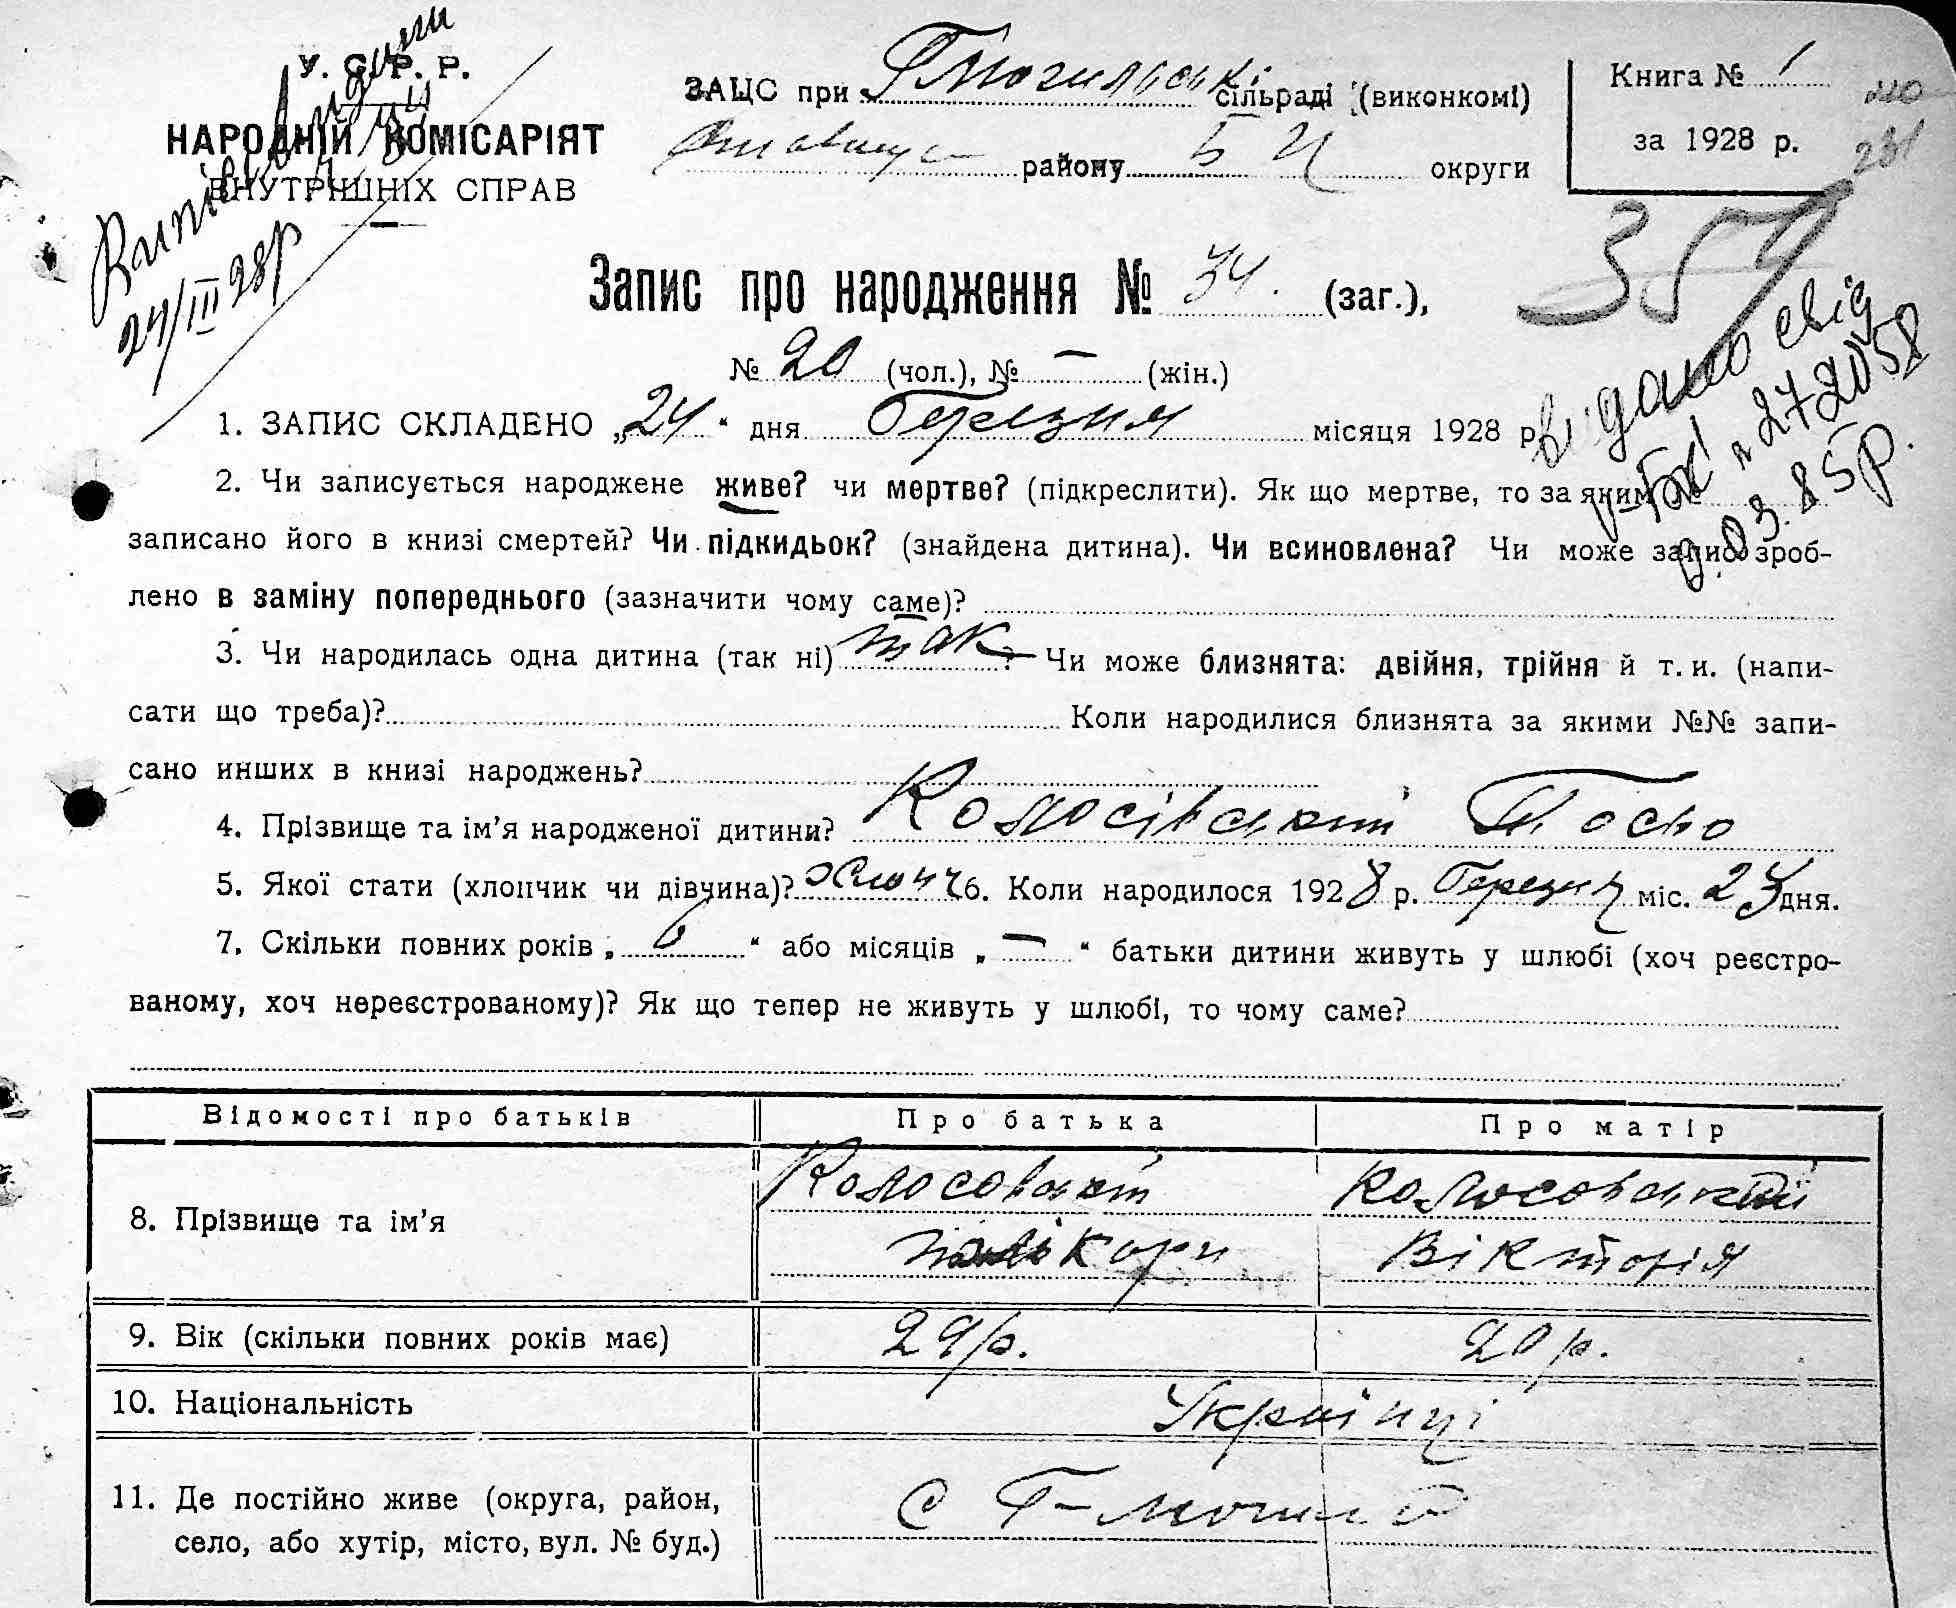 У. С. Р. Р.
НАРОДНІЙ КОМІСАРІЯТ
ВНУТРІШНІХ СПРАВ
24/III 28р
ЗАЦС при Г Могильські сільраді (виконкомі)
району Б Ц округи
Книга № 1
за 1928 р.
231
354
Запис про народження № 34. (заг.),
№ 20 (чол.), № — (жін.)
видано свід
№ 272058
03.85р.
1. ЗАПИС СКЛАДЕНО „24“ дня Березня місяця 1928 р.
2. Чи записується народжене живе? чи мертве? (підкреслити). Як що мертве, то за яким №
записано його в книзі смертей? Чи підкидьок? (знайдена дитина). Чи всиновлена? Чи може запис зроб-
лено в заміну попереднього (зазначити чому саме)?
3. Чи народилась одна дитина (так ні) так? Чи може близнята: двійня, трійня й т. и. (напи-
сати що треба)? Коли народилися близнята за якими №№ запи-
сано инших в книзі народжень?
4. Прізвище та ім’я народженої дитини? Колосівський
5. Якої стати (хлопчик чи дівчина)? хлопч 6. Коли народилося 1928 р. Березня міс. 23 дня.
7. Скільки повних років „6“ або місяців „—“ батьки дитини живуть у шлюбі (хоч реєстро-
ваному, хоч нереєстрованому)? Як що тепер не живуть у шлюбі, то чому саме?
Відомості про батьків Про батька Про матір
8. Прізвище та ім’я Колосовский Колосовський
Вікторія
9. Вік (скільки повних років має) 29 р. 20 р.
10. Національність Українці
11. Де постійно живе (округа, район,
село, або хутір, місто, вул. № буд.) С Г-Могила